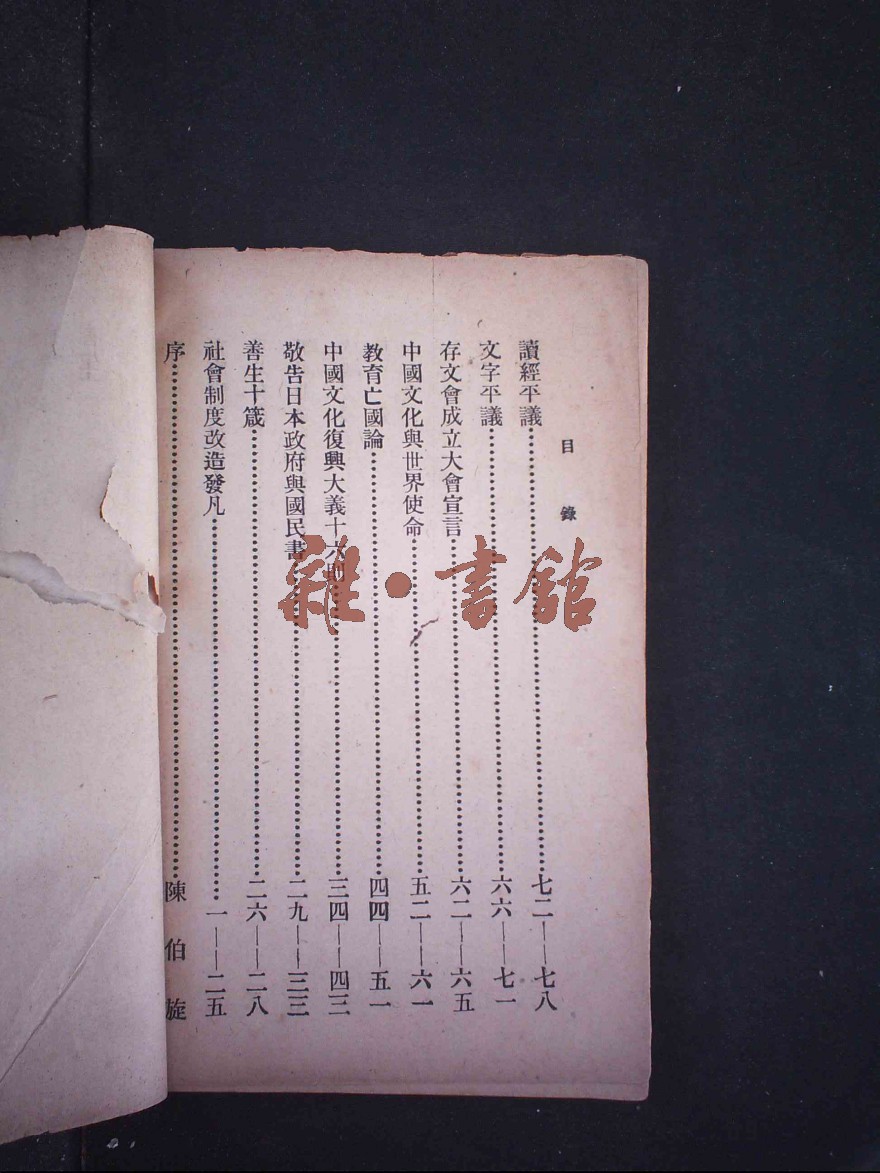 目錄
讀經平議⋯⋯七二——七八
文字平議⋯⋯六六——七一
存文會成立大會宣言⋯⋯六二——六五
中國文化與世界使命⋯⋯五二——六一
教育亡國論⋯⋯四四——五一
中國文化復興大義十六則⋯⋯三四——四三
敬告日本政府與國民書⋯⋯二九——三三
善生十箴⋯⋯二六——二八
社會制度改造發凡⋯⋯一——二五
序⋯⋯陳伯旋
雜·書館